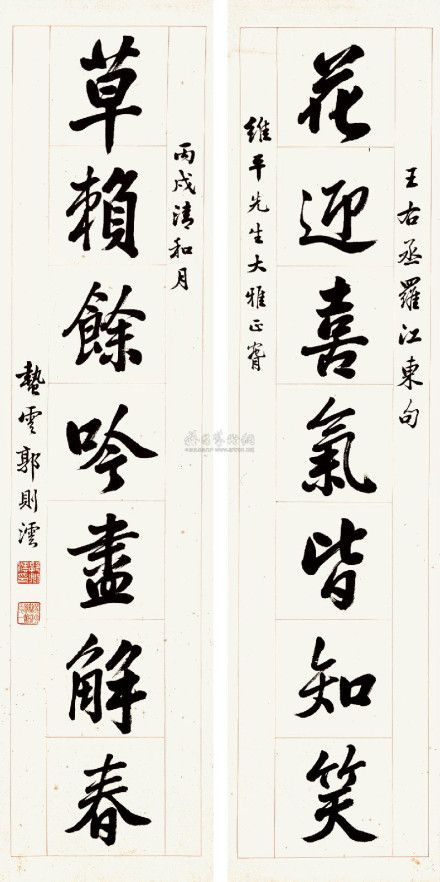 王右丞羅江東句
花迎喜氣皆知笑
維平先生大雅正睯
丙戌清和月
草賴餘吟盡解春
蟄雲郭則澐